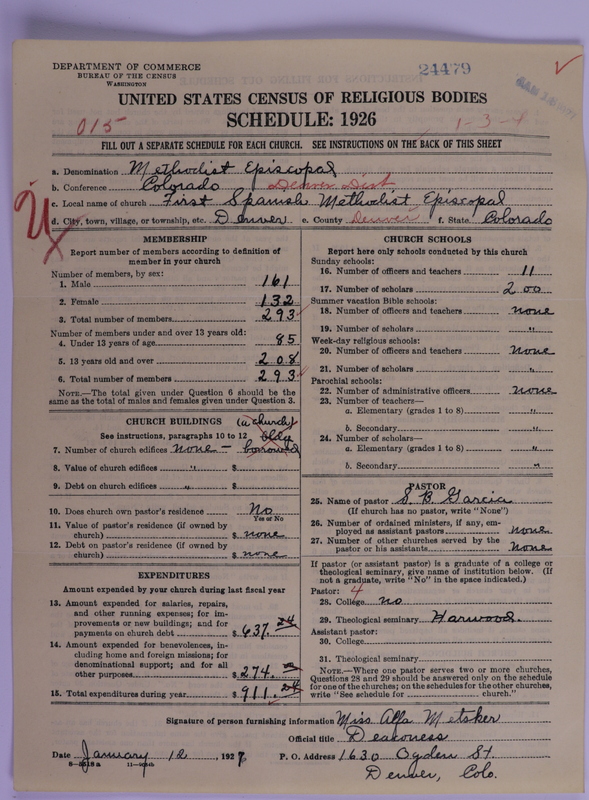 DEPARTMENT OF COMMERCE
BUREAU OF THE CENSUS
WASHINGTON
24479
UNITED STATES CENSUS OF RELIGIOUS BODIES
SCHEDULE: 1926
015
1-3-4
FILL OUT A SEPARATE SCHEDULE FOR EACH CHURCH. SEE INSTRUCTIONS ON THE BACK OF THIS SHEET
a. Denomination Methodist Episcopal
b. Conference Colorado Denver Dist
c. Local name of church First Spanish Methodist Episcopal
d. City, town, village, or township, etc. Denver e. County Denver f. State Colorado
MEMBERSHIP
Report number of members according to definition of
member in your church
Number of members, by sex:
1. Male 161
2. Female 132
3. Total number of members 293
Number of members under and over 13 years old:
4. Under 13 years of age 85
5. 13 years old and over 208
6. Total number of members 293
NOTE.—The total given under Question 6 should be
the same as the total of males and females given under Question 3.
CHURCH BUILDINGS (a church)
See instructions, paragraphs 10 to 12 bldg
7. Number of church edifices none — borrowed
8. Value of church edifices " $
9. Debt on church edifices " $
10. Does church own pastor's residence No
Yes or No
11. Value of pastor's residence (if owned by
church) $ none
12. Debt on pastor's residence (if owned by
church) $ none
EXPENDITURES
Amount expended by your church during last fiscal year
13. Amount expended for salaries, repairs,
and other running expenses; for im-
provements or new buildings; and for
payments on church debt $ 637.
14. Amount expended for benevolences, in-
cluding home and foreign missions; for
denominational support; and for all
other purposes $ 274.
15. Total expenditures during year $ 911.
CHURCH SCHOOLS
Report here only schools conducted by this church
Sunday schools:
16. Number of officers and teachers 11
17. Number of scholars 200
Summer vacation Bible schools:
18. Number of officers and teachers none
19. Number of scholars "
Week-day religious schools:
20. Number of officers and teachers none
21. Number of scholars "
Parochial schools:
22. Number of administrative officers none
23. Number of teachers—
a. Elementary (grades 1 to 8) "
b. Secondary "
24. Number of scholars—
a. Elementary (grades 1 to 8) "
b. Secondary "
PASTOR
25. Name of pastor S. B. Garcia
(If church has no pastor, write "None")
26. Number of ordained ministers, if any, em-
ployed as assistant pastors none
27. Number of other churches served by the
pastor or his assistants None
If pastor (or assistant pastor) is a graduate of a college or
theological seminary, give name of institution below. (If
not a graduate, write "No" in the space indicated.)
Pastor: 4
28. College no
29. Theological seminary Harwood.
Assistant pastor:
30. College
31. Theological seminary
NOTE.—Where one pastor serves two or more churches,
Questions 28 and 29 should be answered only on the schedule
for one of the churches; on the schedules for the other churches,
write "See schedule for church."
Signature of person furnishing information Miss Alfa Metsker
Official title Deakoness
Date January 12, 1927 P. O. Address 1630 Ogden St.
Denver, Colo.